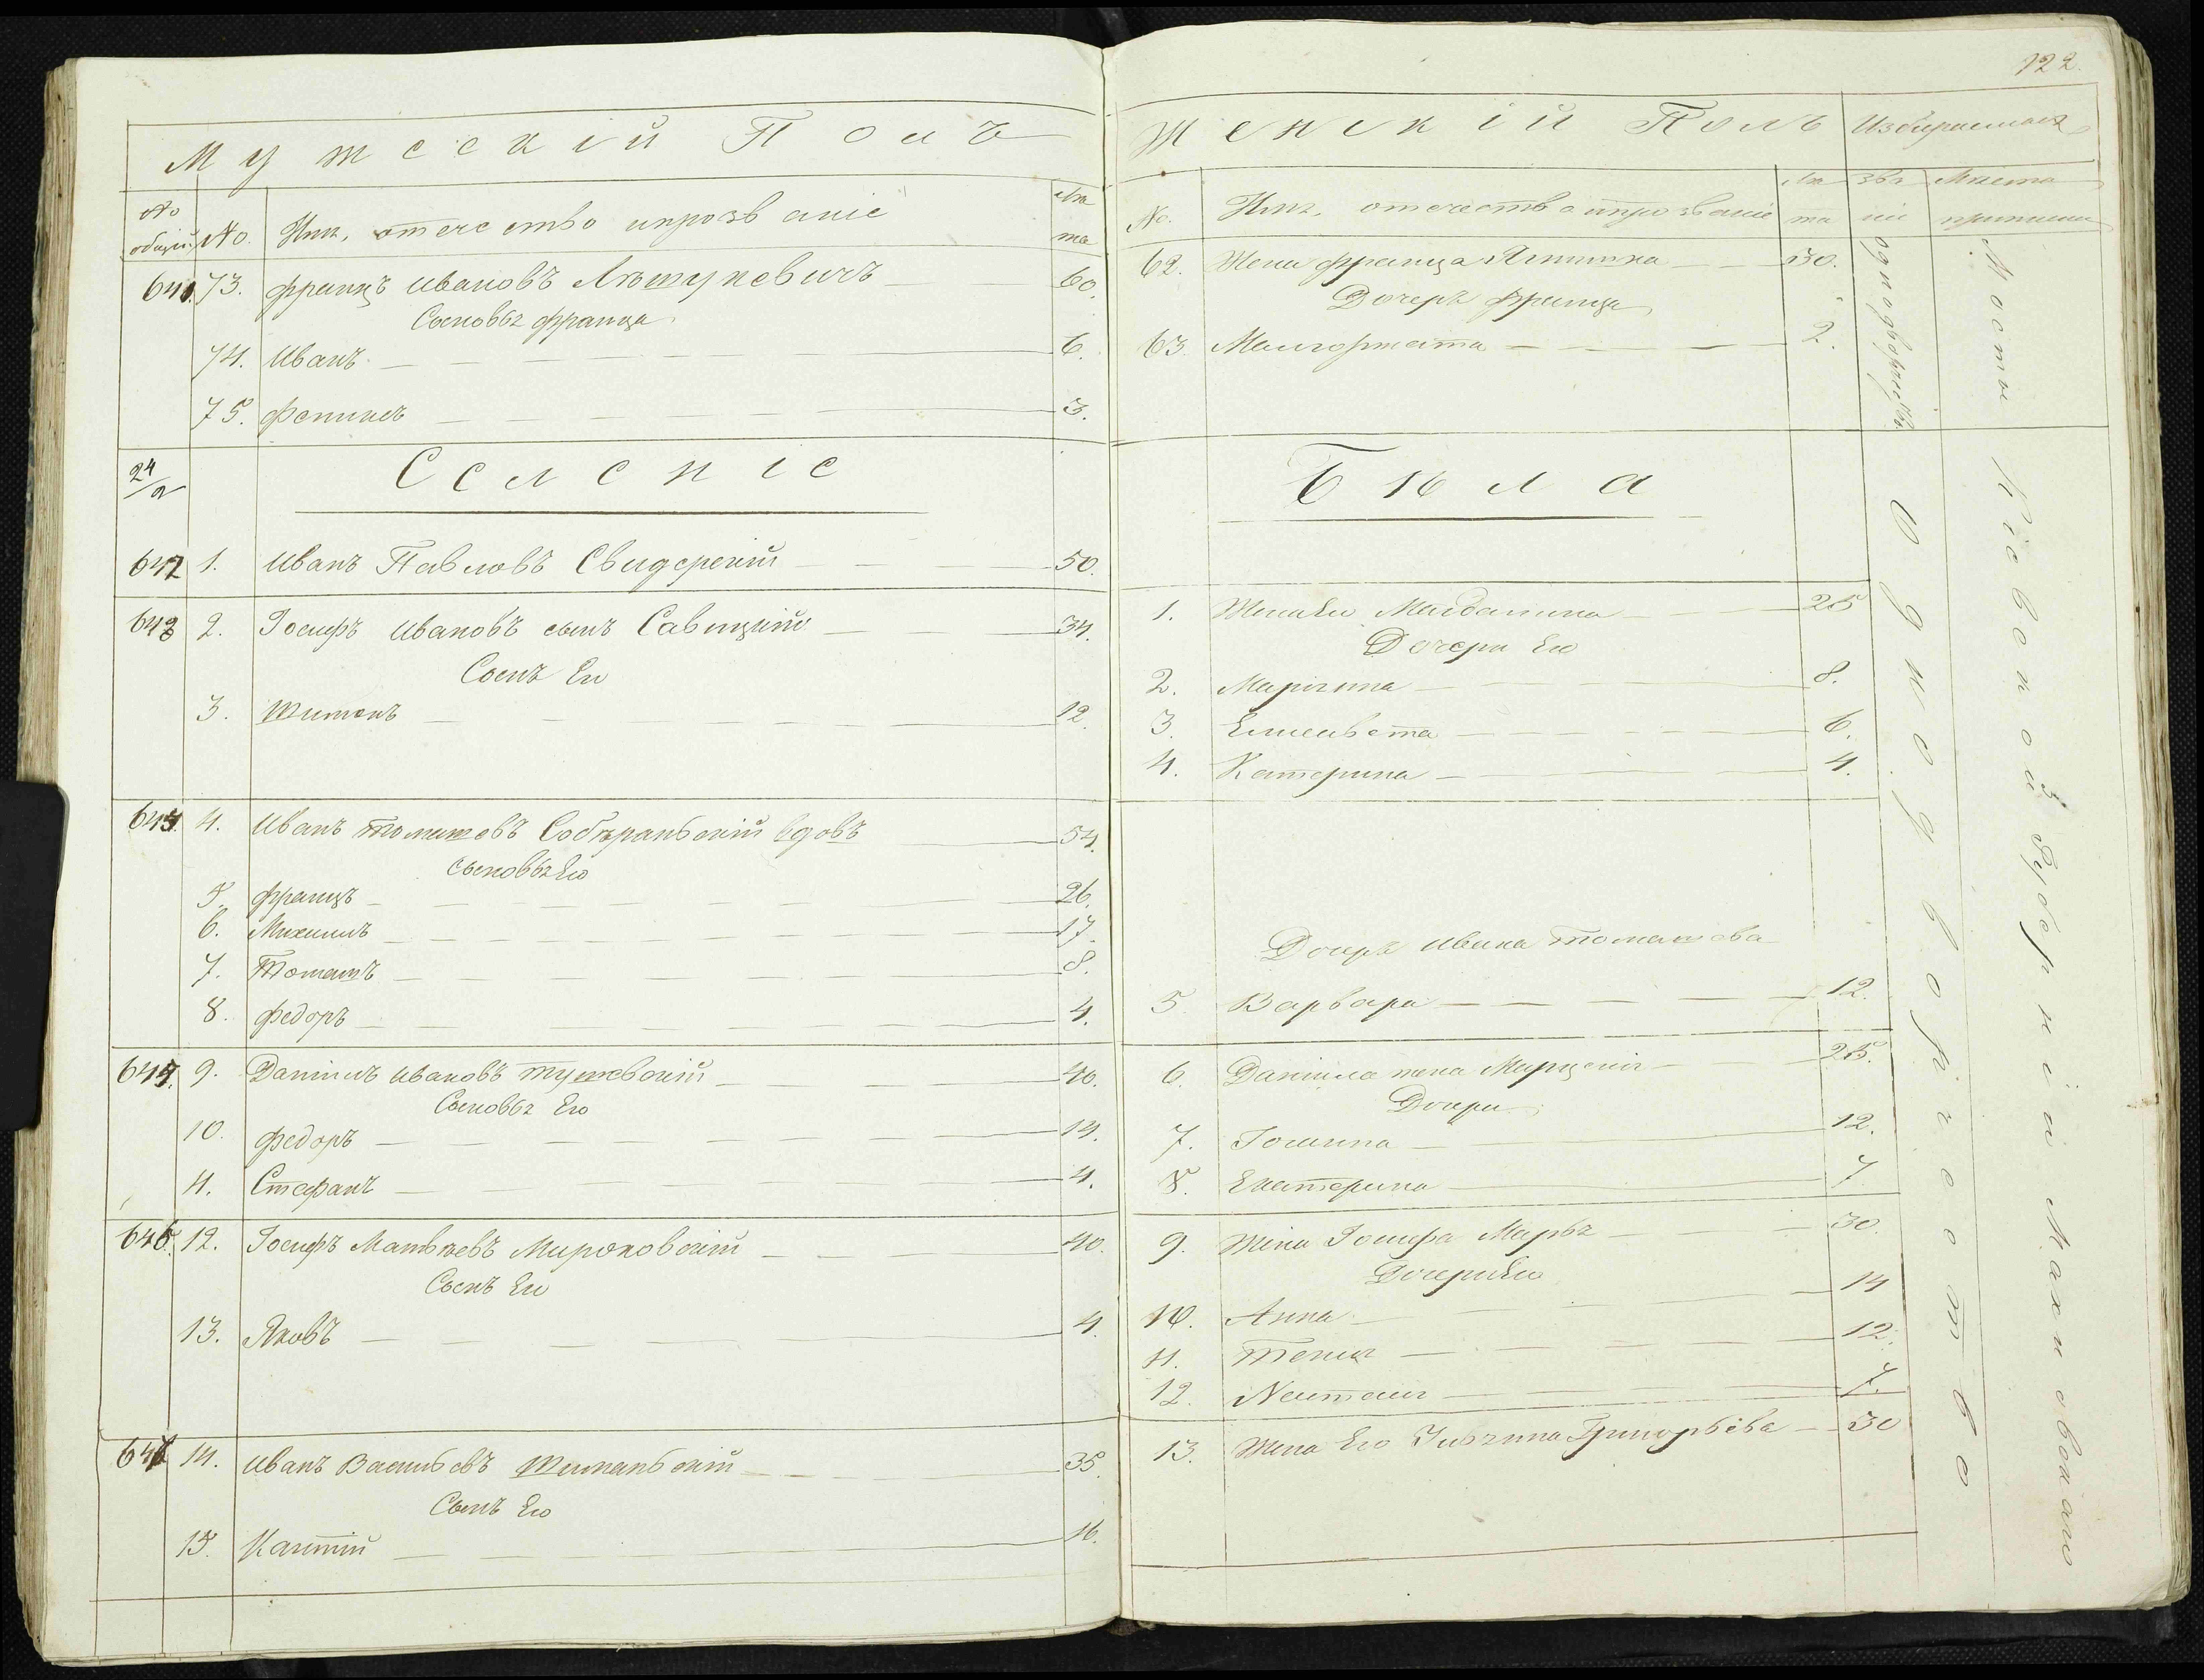 Мужескій Полъ
№ общій
№
Имя, отечество и прозваніе
Лѣта
641. 73. Францъ Ивановъ Лѣшукевичъ 60.
Сыновья Франца
74. Иванъ 6.
75. Феликсъ 3.
24/2
Селеніе
642 1. Иванъ Павловъ Свидерскій 50.
643 2. Іосифъ Ивановъ сынъ Савицкій 34.
Сынъ Его
3. Шимонъ 12.
644. 4. Иванъ Томашовъ вдовъ 54.
Сыновья Его
5. Францъ 26.
6. Михаилъ 17.
7. Томашъ 8.
8. Федоръ 4.
645. 9. Даніилъ Ивановъ 40.
Сыновья Его
10. Федоръ 14.
11. Стефанъ 4.
646. 12. Іосифъ Матвѣевъ Мироховскій 40.
Сынъ Его
13. Яковъ 4.
647 14. Иванъ Васильевъ Шиманскій 35.
Сынъ Его
15. 16.
122.
Женскій Полъ
Избираемыя
№.
Имя, отечество и прозваніе
Лѣта
званіи
Мѣста приписки
62. Жена Франца 30.
Дочеръ Франца
63. Малгоржата 2.
Однодворчество
Мосты
Бѣла
1. Жена Его Магдалина 25
Дочери Его
2. Маріянна 8.
3. Елисавета 6.
4. Катерина 4.
Дочеръ Ивана Томашова
5. Варвара 12.
6. Даніила жена 25.
Дочери
7. 12.
8. Екатерина 7
9. Жена Іосифа Марья 30.
Дочери Его
10. Анна 14
11. Текля 12.
12. Наталія 7.
13. Жена Его Григорьева 30
Однодворчество
Кіевской Губерніи Махновскаго